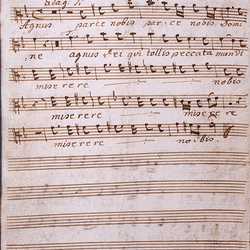 adag. Si
Agnus parce nobis par: ce nobis Domi
ne agnus Dei qui tollis peccata mundi
miserere nobis
miserere miserere
miserere nobis.